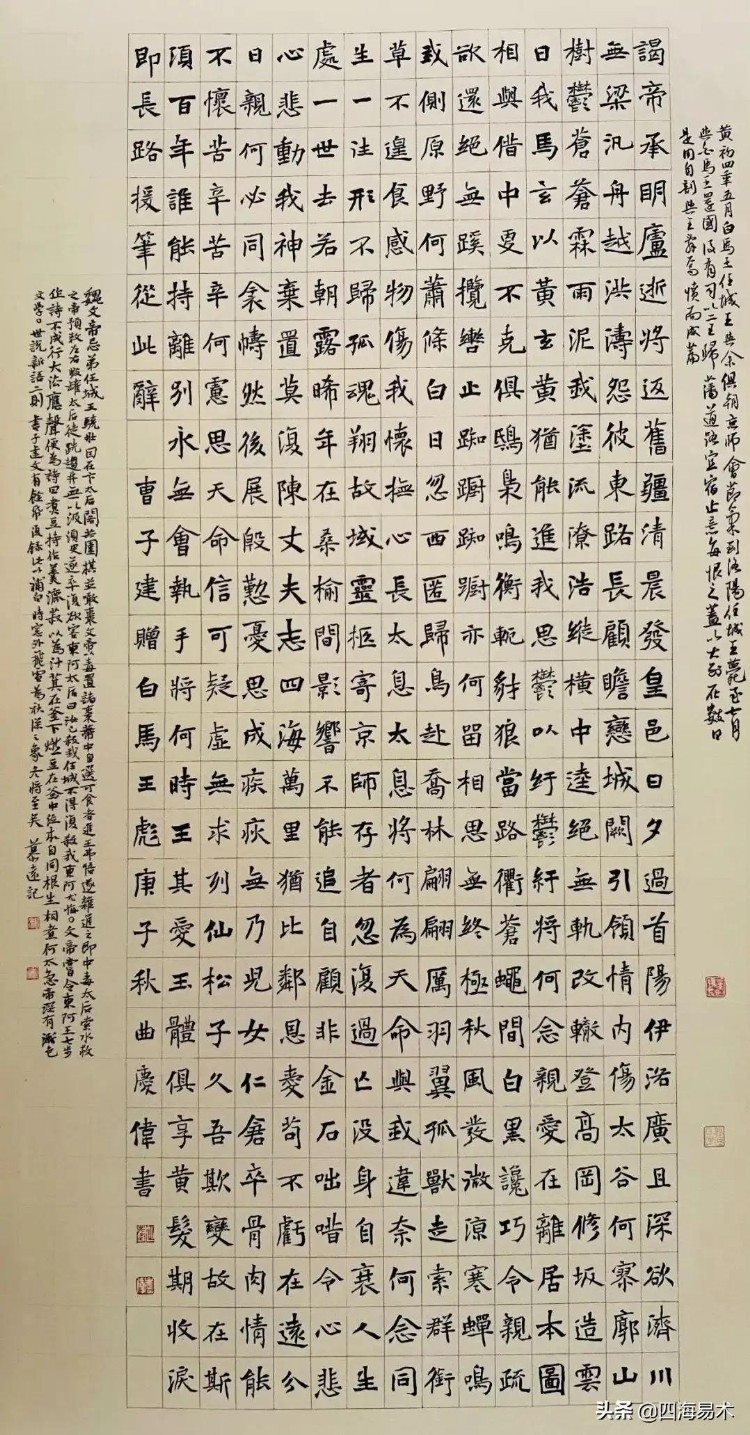 黄初四年五月白馬王任城王與余俱朝京師會節氣到洛陽任城王薨至七月
與白馬王還國後有司以二王歸藩道路宜宿止意每恨之蓋以大別在數日
是用自剖與王辭焉憤而成篇
謁帝承明廬逝將返舊疆清晨發皇邑日夕過首陽伊洛廣且深欲濟川
無梁汎舟越洪濤怨彼東路長顧瞻戀城闕引領情内傷太谷何寥廓山
樹鬱蒼蒼霖雨泥我塗流潦浩縱橫中逵絕無軌改轍登高岡修坂造雲
日我馬玄以黃玄黃猶能進我思鬱以紆鬱紆將何念親愛在離居本圖
相與偕中更不克俱鴟梟鳴衡軛豺狼當路衢蒼蠅間白黑讒巧令親疏
欲還絕無蹊攬轡止踟躕踟躕亦何留相思無終極秋風發微涼寒蟬鳴
我側原野何蕭條白日忽西匿歸鳥赴喬林翩翩厲羽翼孤獸走索群銜
草不遑食感物傷我懷撫心長太息太息將何為天命與我違奈何念同
生一往形不歸孤魂翔故域靈柩寄京師存者忽復過亡没身自衰人生
處一世去若朝露晞年在桑榆間影響不能追自顧非金石咄唶令心悲
心悲動我神棄置莫復陳丈夫志四海萬里猶比鄰恩愛苟不虧在遠分
日親何必同衾幬然後展慇懃憂思成疾疢無乃兒女仁倉卒骨肉情能
不懷苦辛苦辛何慮思天命信可疑虛無求列仙松子久吾欺變故在斯
須百年誰能持離別永無會執手將何時王其愛玉體俱享黃髮期收淚
即長路援筆從此辭 曹子建贈白馬王彪庚子秋曲慶偉書
魏文帝忌弟任城王驍壯因在卞太后閤共圍棋並噉棗文帝以毒置諸棗蒂中自選可食者進王弗悟遂雜進之即中毒太后索水救
之帝預敕左右毀瓶罐太后徒跣趨井無以汲須臾遂卒復欲害東阿太后曰汝已殺我任城不得復殺我東阿 文帝嘗令東阿王七步
作詩不成行大法應聲便為詩曰煮豆持作羹漉菽以為汁萁在釜下燃豆在釜中泣本自同根生相煎何太急帝深有慚色
文學世說新語二則 書子建文有餘紙復錄此以補白時窗外 慕遠記
头条 @四海易木